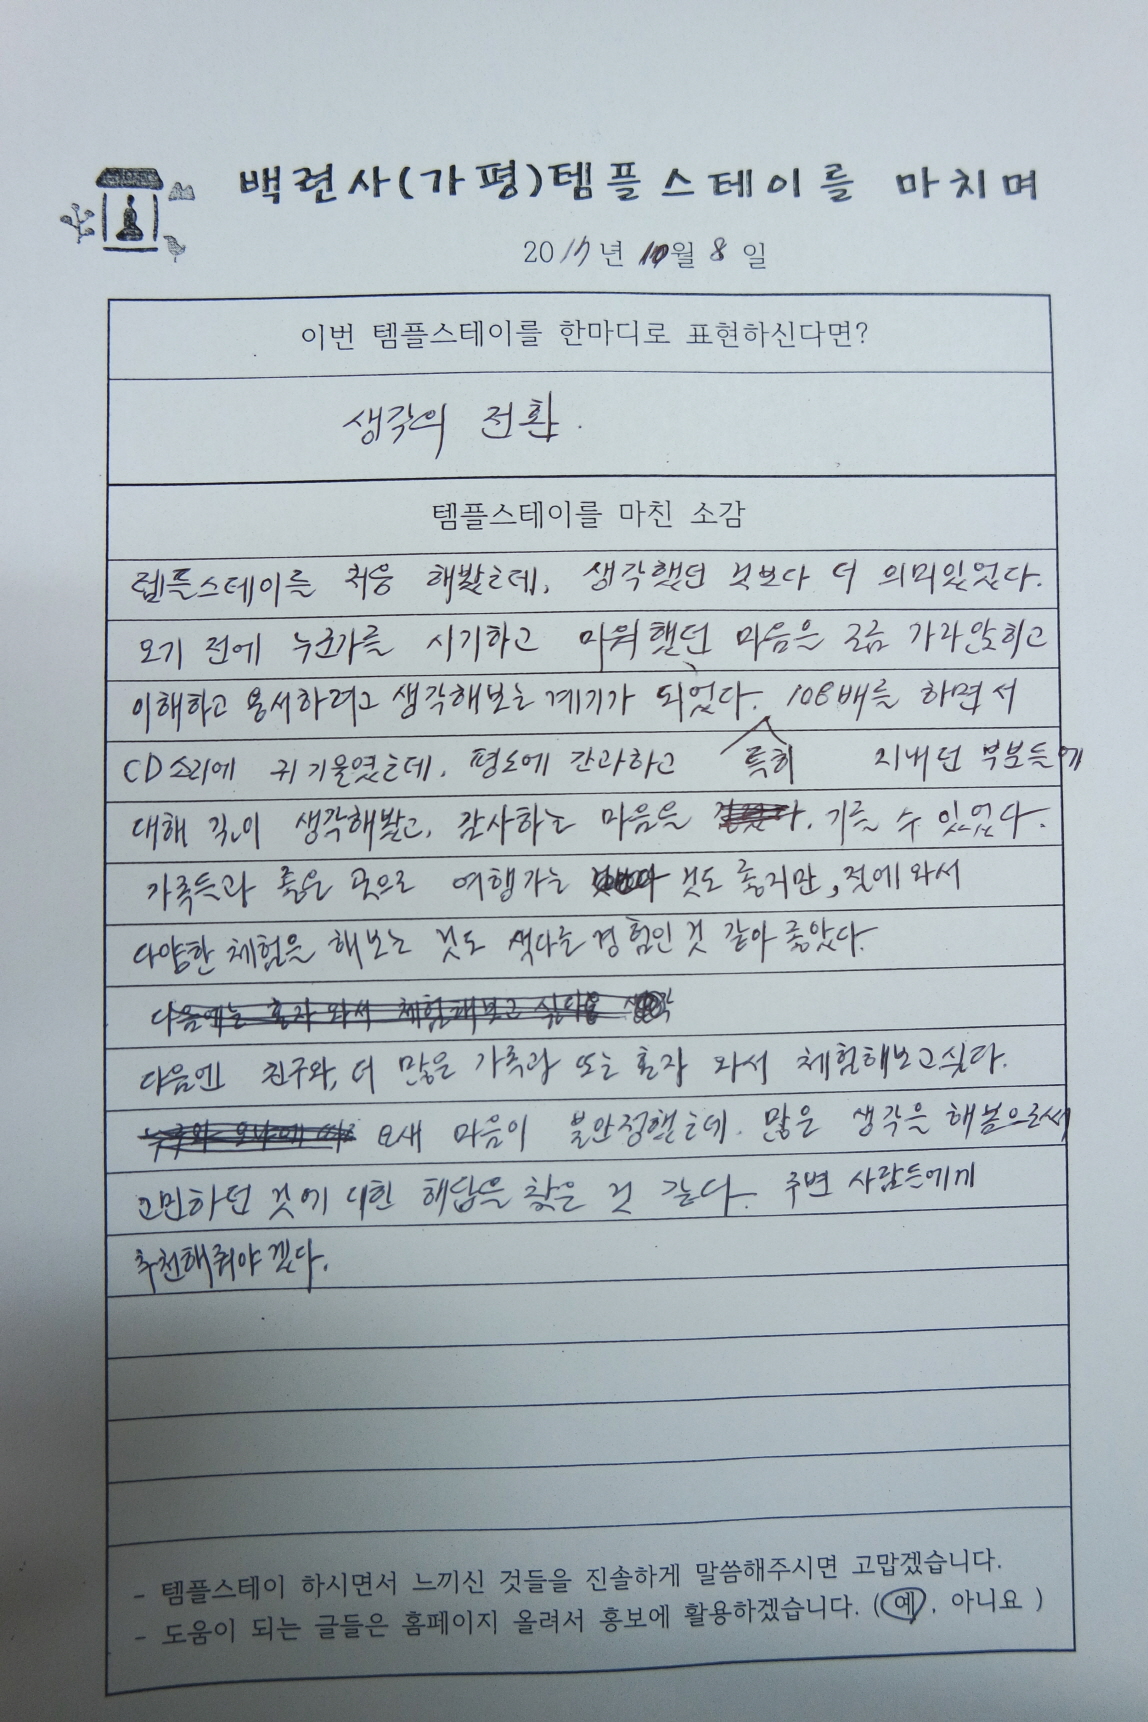 백련사(가평)템플스테이를 마치며
2017년 10월 8일
이번 템플스테이를 한마디로 표현하신다면?
생각의 전환.
템플스테이를 마친 소감
템플스테이를 처음 해봤는데, 생각했던 것보다 더 의미있었다.
오기 전에 누군가를 시기하고 미워했던 마음을 조금 가라앉히고
이해하고 용서하려고 생각해보는 계기가 되었다. 특히 108배를 하면서
CD소리에 귀 기울였는데, 평소에 간과하고 지내던 부분들에
대해 깊이 생각해봤고, 감사하는 마음을 기를 수 있었다.
가족들과 좋은 곳으로 여행가는 것도 좋지만, 절에 와서
다양한 체험을 해보는 것도 색다른 경험인 것 같아 좋았다.
다음에는 혼자 와서 체험해보고 싶다는 생각
다음엔 친구와, 더 많은 가족과 또는 혼자 와서 체험해보고싶다.
요새 마음이 불안정했는데. 많은 생각을 해봄으로써
고민하던 것에 대한 해답을 찾은 것 같다. 주변 사람들에게
추천해줘야겠다.
- 템플스테이 하시면서 느끼신 것들을 진솔하게 말씀해주시면 고맙겠습니다.
- 도움이 되는 글들은 홈페이지 올려서 홍보에 활용하겠습니다. (예, 아니요)